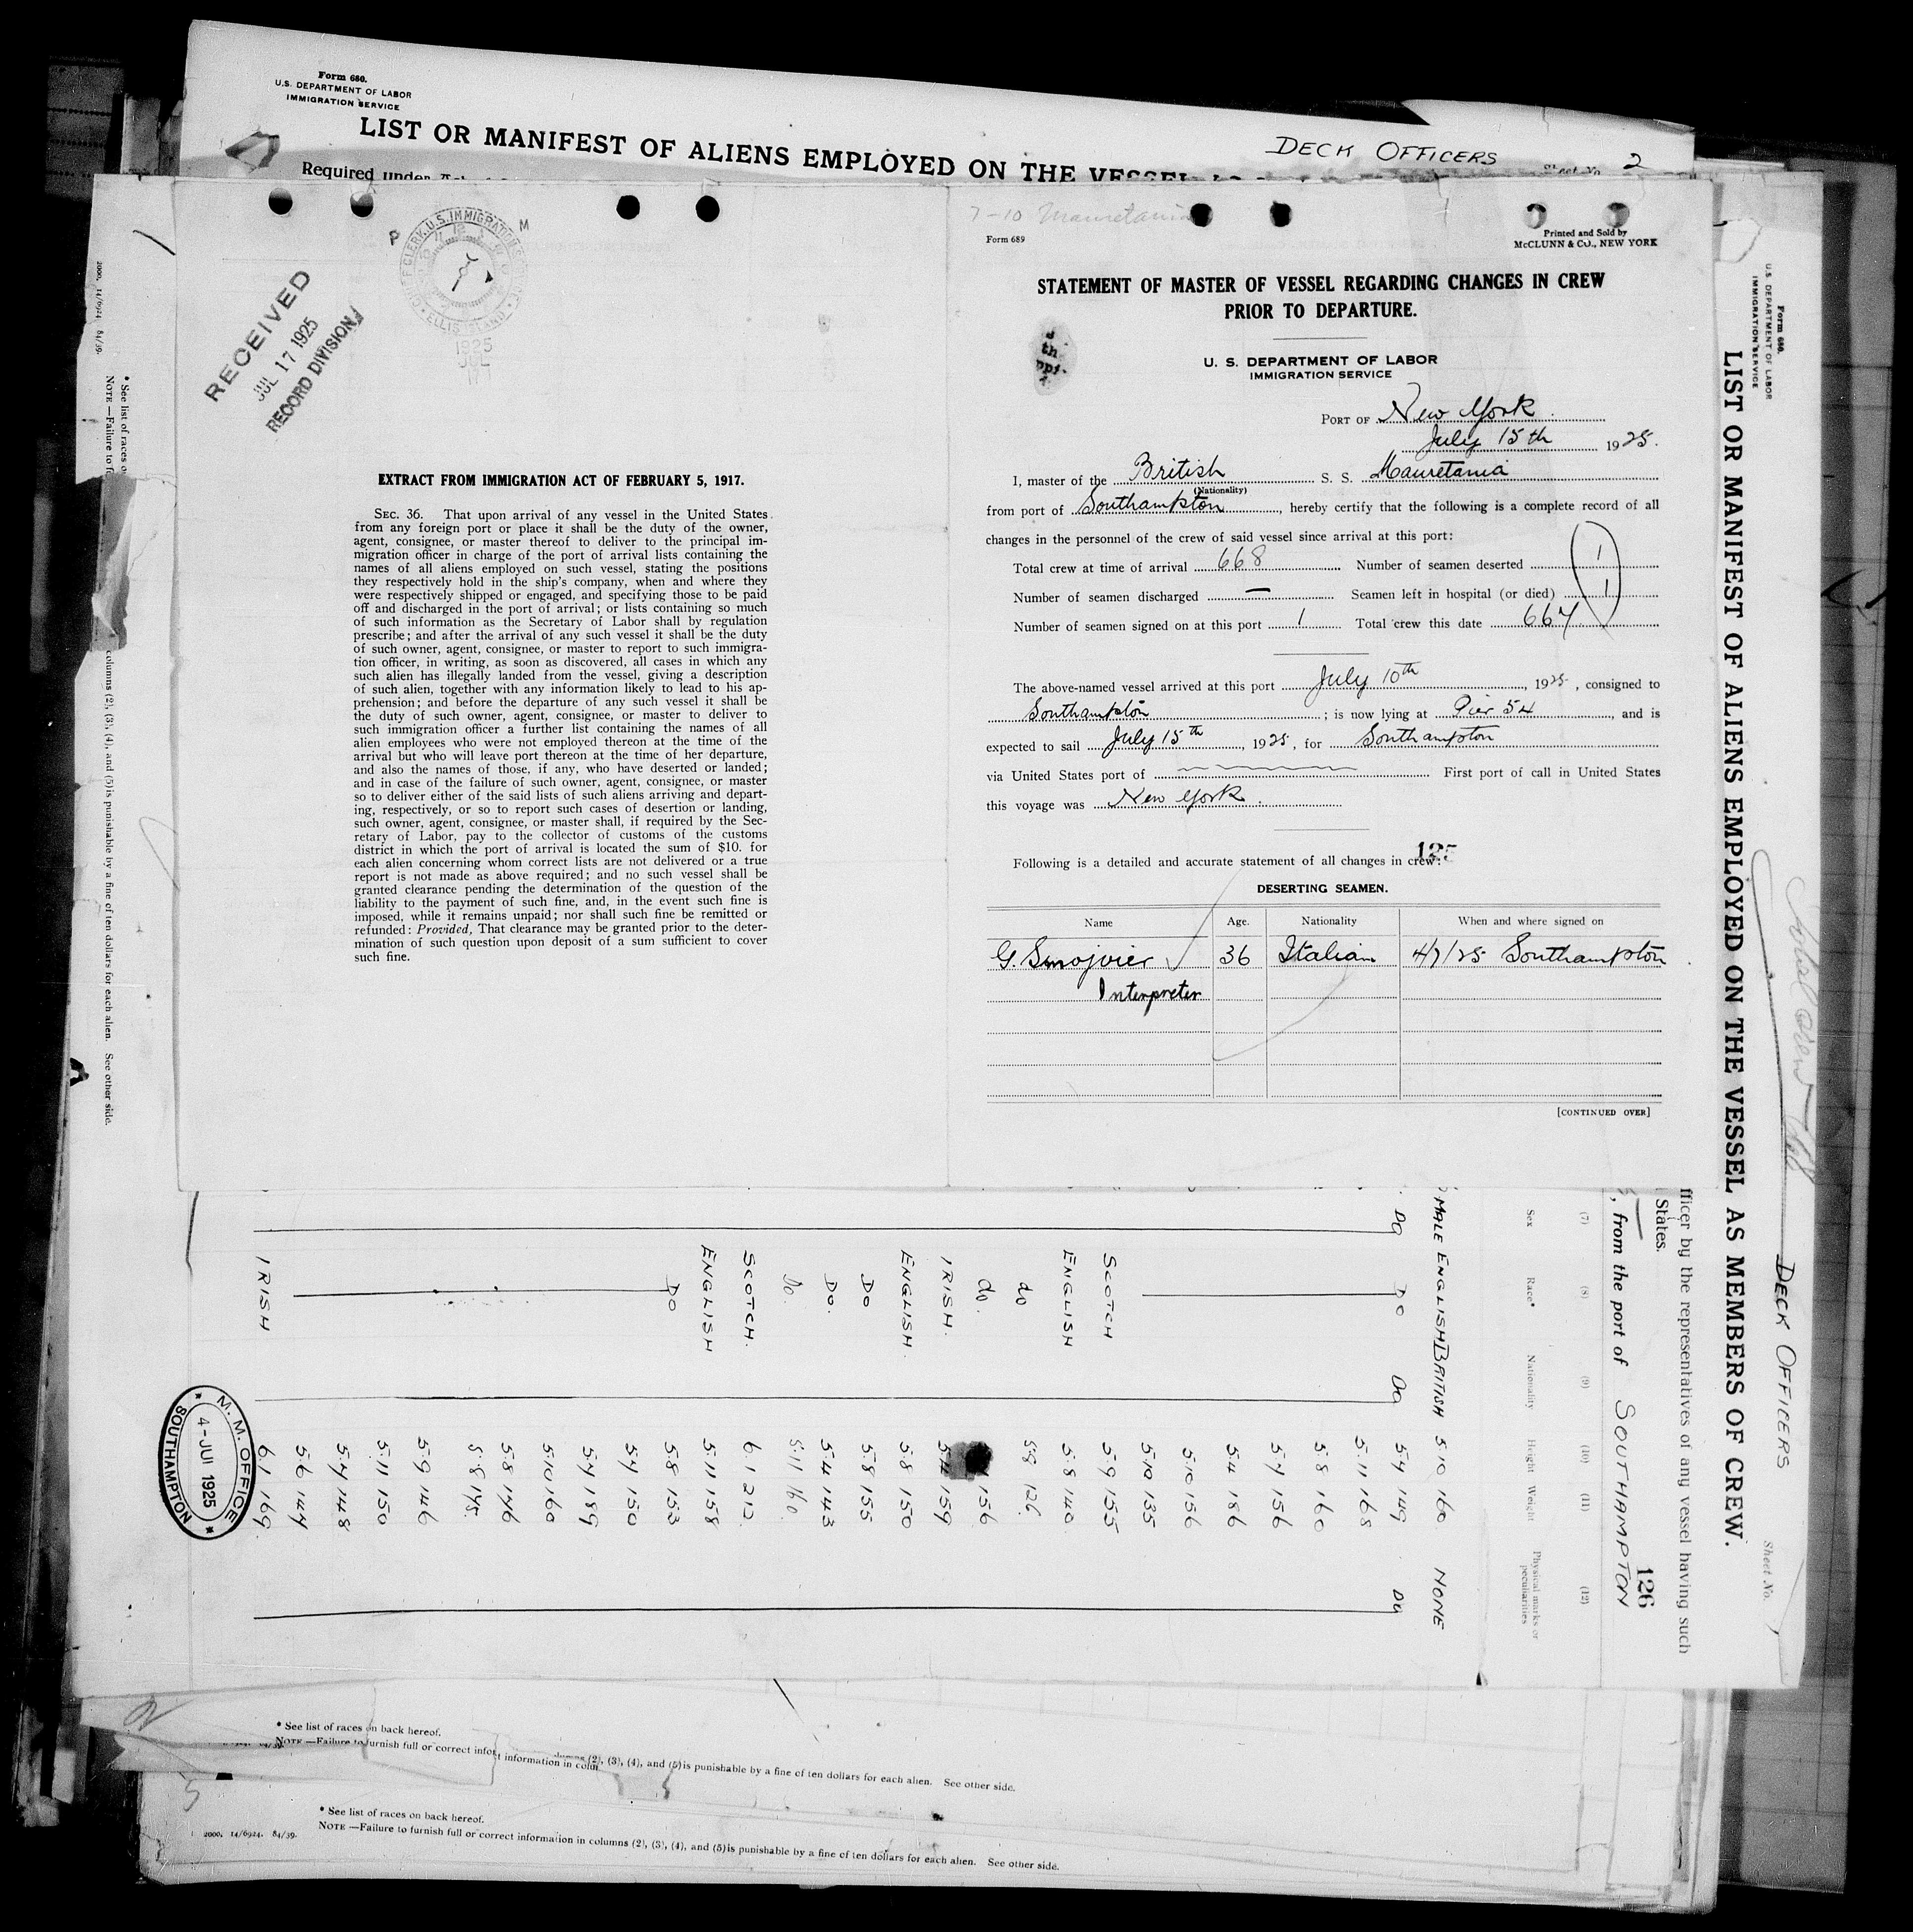 Form 680.
U.S. DEPARTMENT OF LABOR
IMMIGRATION SERVICE
LIST OR MANIFEST OF ALIENS EMPLOYED ON THE VESSEL
DECK OFFICERS
Sheet No. 2
Required under
P M
CHIEF CLERK, U.S. IMMIGRATION
ELLIS ISLAND
1925
JUL
17
RECEIVED
JUL 17 1925
RECORD DIVISION
EXTRACT FROM IMMIGRATION ACT OF FEBRUARY 5, 1917.
SEC. 36. That upon arrival of any vessel in the United States
from any foreign port or place it shall be the duty of the owner,
agent, consignee, or master thereof to deliver to the principal im-
migration officer in charge of the port of arrival lists containing the
names of all aliens employed on such vessel, stating the positions
they respectively hold in the ship's company, when and where they
were respectively shipped or engaged, and specifying those to be paid
off and discharged in the port of arrival; or lists containing so much
of such information as the Secretary of Labor shall by regulation
prescribe; and after the arrival of any such vessel it shall be the duty
of such owner, agent, consignee, or master to report to such immigra-
tion officer, in writing, as soon as discovered, all cases in which any
such alien has illegally landed from the vessel, giving a description
of such alien, together with any information likely to lead to his ap-
prehension; and before the departure of any such vessel it shall be
the duty of such owner, agent, consignee, or master to deliver to
such immigration officer a further list containing the names of all
alien employees who were not employed thereon at the time of the
arrival but who will leave port thereon at the time of her departure,
and also the names of those, if any, who have deserted or landed;
and in case of the failure of such owner, agent, consignee, or master
so to deliver either of the said lists of such aliens arriving and depart-
ing, respectively, or so to report such cases of desertion or landing,
such owner, agent, consignee, or master shall, if required by the Sec-
retary of Labor, pay to the collector of customs of the customs
district in which the port of arrival is located the sum of $10. for
each alien concerning whom correct lists are not delivered or a true
report is not made as above required; and no such vessel shall be
granted clearance pending the determination of the question of the
liability to the payment of such fine, and, in the event such fine is
imposed, while it remains unpaid; nor shall such fine be remitted or
refunded: Provided, That clearance may be granted prior to the deter-
mination of such question upon deposit of a sum sufficient to cover
such fine.
7-10 Mauretania
Form 689
Printed and Sold by
McCLUNN & CO., NEW YORK
STATEMENT OF MASTER OF VESSEL REGARDING CHANGES IN CREW
PRIOR TO DEPARTURE.
U. S. DEPARTMENT OF LABOR
IMMIGRATION SERVICE
PORT OF New York
July 15th 1925.
I, master of the British S. S. Mauretania
(Nationality)
from port of Southampton, hereby certify that the following is a complete record of all
changes in the personnel of the crew of said vessel since arrival at this port:
Total crew at time of arrival 668 Number of seamen deserted 1
Number of seamen discharged — Seamen left in hospital (or died) 1
Number of seamen signed on at this port 1 Total crew this date 667
The above-named vessel arrived at this port July 10th, 1925, consigned to
Southampton; is now lying at Pier 54, and is
expected to sail July 15th, 1925, for Southampton
via United States port of First port of call in United States
this voyage was New York.
125
Following is a detailed and accurate statement of all changes in crew:
DESERTING SEAMEN.
Name Age. Nationality When and where signed on
G. Smojvier 36 Italian 4/7/25 Southampton
Interpreter
[CONTINUED OVER]
Form 680.
U.S. DEPARTMENT OF LABOR
IMMIGRATION SERVICE
DECK OFFICERS
Sheet No. 1
LIST OR MANIFEST OF ALIENS EMPLOYED ON THE VESSEL AS MEMBERS OF CREW.
fficer by the representatives of any vessel having such
States.
126
, from the port of SOUTHAMPTON
(7) (8) (9) (10) (11) (12)
Sex Race* Nationality Height Weight Physical marks or peculiarities
MALE ENGLISH BRITISH 5.10 160 NONE
DO DO DO 5.7 149 DO
5.11 168
5.8 160
5.7 156
5.4 186
5.10 156
5.10 135
SCOTCH 5.9 155
ENGLISH 5.8 140
do 5.8 126
do. 156
IRISH. 5.4 159
ENGLISH. 5.8 150
DO 5.8 155
DO. 5.4 143
Do. 5.11 160
SCOTCH. 6.1 212
ENGLISH 5.11 158
DO 5.8 153
5.7 150
5.7 189
5.10 160
5.8 146
5.8 145
5.9 146
5.11 150
5.7 148
5.6 147
IRISH 6.1 169
M. M. OFFICE
4-JUL 1925
SOUTHAMPTON
2000. 14/6924 84/39.
* See list of races o
NOTE —Failure to f
columns (2), (3), (4), and (5) is punishable by a fine of ten dollars for each alien. See other side.
2
* See list of races on back hereof.
NOTE —Failure to furnish full or correct infor
t information in colu
(2), (3), (4), and (5) is punishable by a fine of ten dollars for each alien. See other side.
5
* See list of races on back hereof.
2000. 14/6924. 84/39.
NOTE —Failure to furnish full or correct information in columns (2), (3), (4), and (5) is punishable by a fine of ten dollars for each alien. See other side.